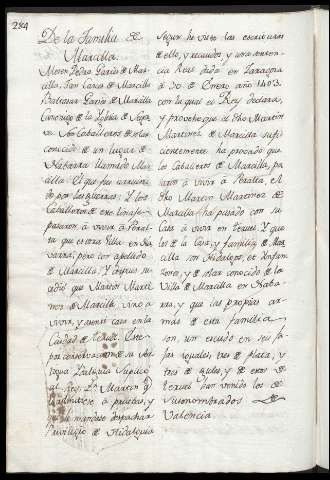 284
De la familia de
Marcilla.
Mosen Pedro Garcés de Mar-
cilla, Juan Garcés de Marcilla
Baltasar Garcés de Marcilla
Canonigo de la Iglesia de
son Caballeros de solar
conocido de un lugar de
Nabarra llamado Mar-
cilla. El que fue arruina-
do por las guerras. Y los
Caballeros de ese linaje
pasaron à vivir à Peral-
ta que es otra Villa en Na-
varra, pero con apellido
de Marcilla. Y despues su-
cedió que Martin Marti-
nez de Marcilla vino a
vivir, y asentó casa en la
Ciudad de Teruel. Este
por conservacion de su An-
tigua Hidalguia suplicó
al Rey Dn. Martin q.
admitiese à pruebas, y
mandose despachar
Privilegio de Hidalguia
Segun he visto las escrituras
de ello, y recaudos, y una senten-
cia Real dada en Zaragoza
à 20 de Enero año 1403.
con la qual el Rey declara,
y provehe que el dho Martin
Martinez de Marcilla sufi-
cientemente ha provado que
los Caballeros de Marcilla, pa-
saron à vivir à Peralta, el
dho Martin Martinez de
Marcilla ha pasado con su
Casa à vivir en Teruel Y que
los de la Casa y familia de Mar-
cilla son Hidalgos, è Infan-
zones, y de solar conocido de la
Villa de Marcilla en Naba-
rra, y que las propias ar-
mas de esta familia
son, un escudo en seis fa-
jas iguales, tres de plata, y
tres de azules, y de estos de
Teruel han venido los de
Susonombrados de
Valencia